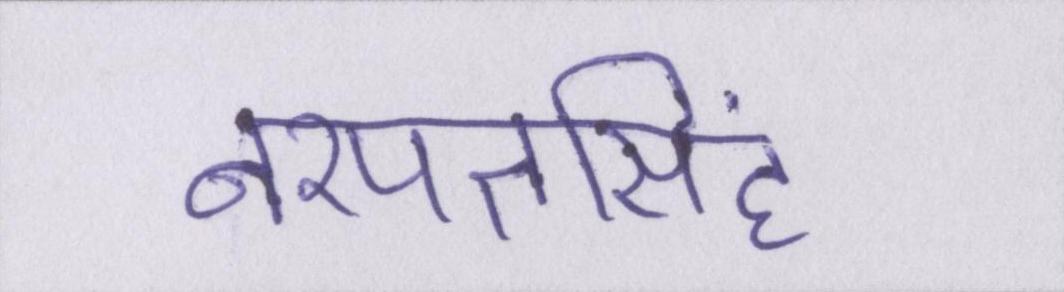 नरपतसिंह